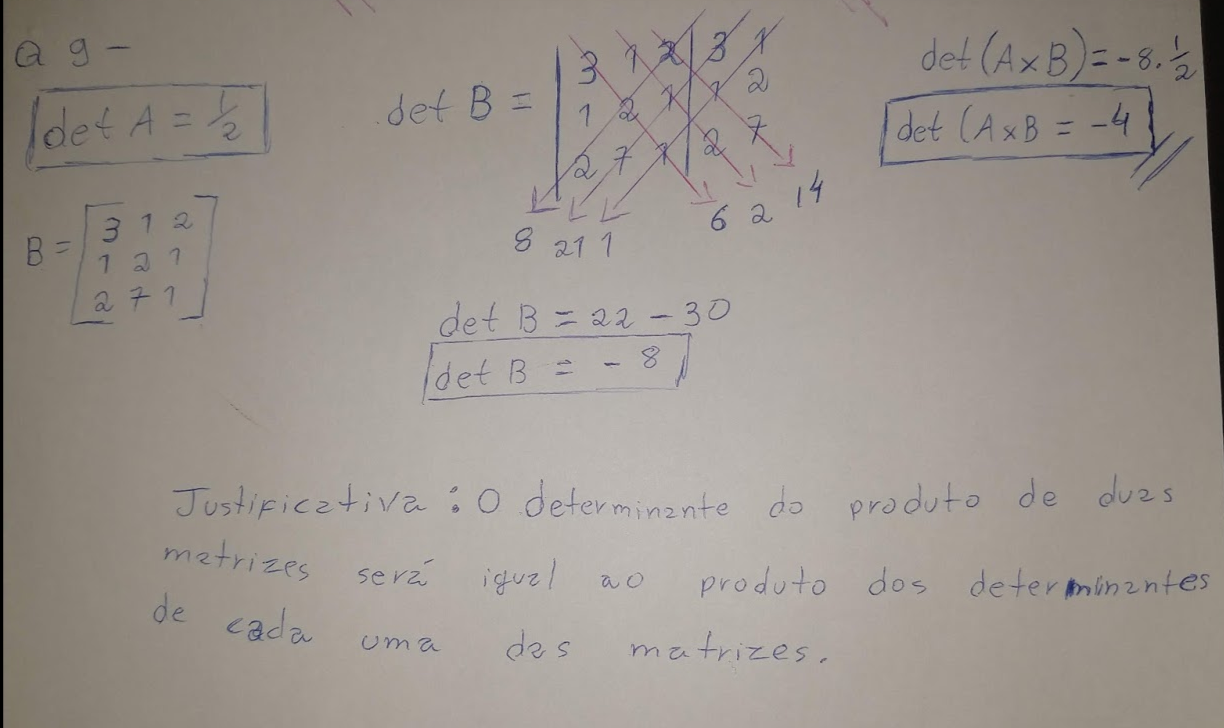 Q 9 -
det A = 1/2
B = [3 1 2
1 2 1
2 7 1]
det B = | 3 1 2 | 3 1
1 2 1 | 1 2
2 7 1 | 2 7
8 21 1 6 2 14
det B = 22 - 30
det B = - 8
det (A x B) = -8 . 1/2
det (A x B = -4
Justificativa : O determinante do produto de duas
matrizes será igual ao produto dos determinantes
de cada uma das matrizes.